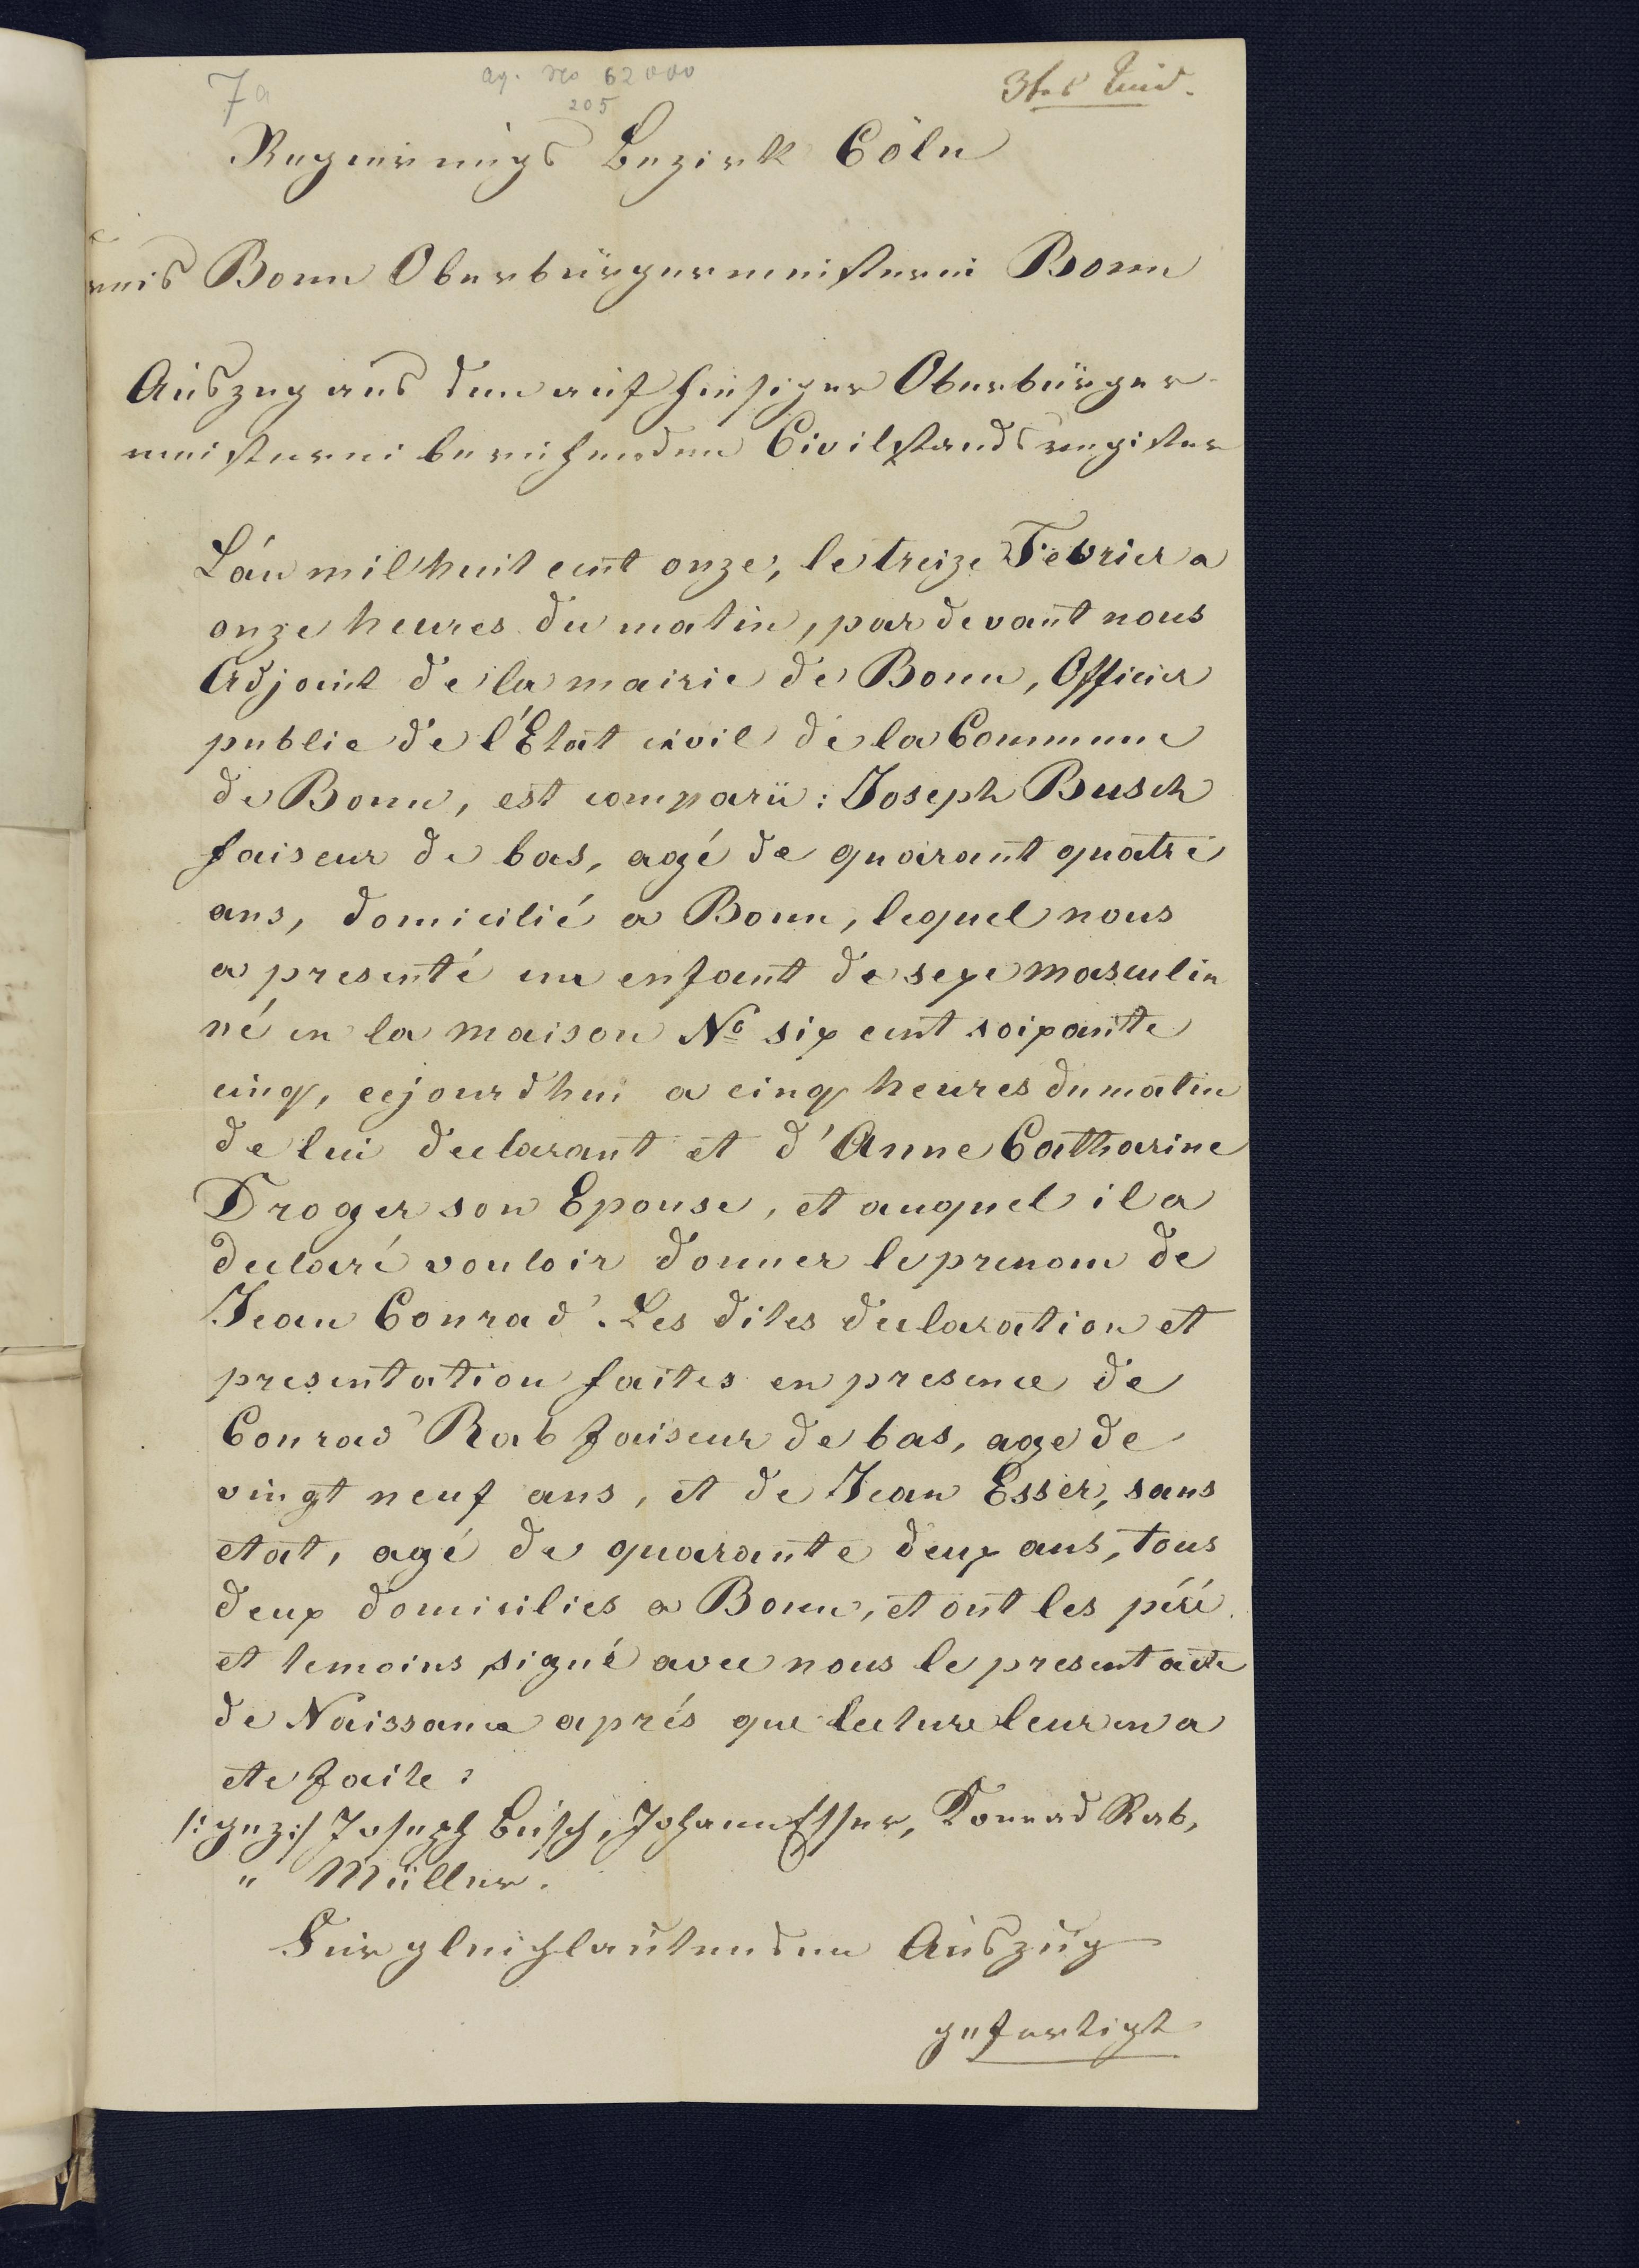 7a
ay. no 62000
205
3tes Kind.
Regierungs Bezirk Cöln
reis Bonn Oberbürgermeisterei Bonn
Auszug aus dem auf hiesiger Oberbürger-
meisterei beruhendem Civilstandsregister
L'án mil huit cent onze, le treize Février a
onze heures du matin, par devant nous
Adjoint de la mairie de Bonn, Officier
public de l'Etat civil de la Commune
de Bonn, est comparü: Joseph Busch
faiseur de bas, agé de quarant quatre
ans, domicilié a Bonn, lequel nous
a presenté un enfant de sexe masculin
né en la maison No six cent soixante
cinq, cejourdhui a cinq heures du matin
de lui declarant et d'Anne Catharine
Droger son Epouse, et auquel il a
declaré vouloir donner le prenom de
Jean Conrad. Les dites declaration et
presentation faites en presence de
Conrad Rab faiseur de bas, age de
vingt neuf ans, et de Jean Esser, sans
etat, agé de quarante deux ans, tous
deux domicilies a Bonn, et ont les péré
et temoins signé avec nous le present acte
de Naissance aprés que lecture leur en a
ete faite:
/:gez:/ Joseph Busch, Johann Esser, Konrad Rab,
" Müller.
Für gleichlautenden Auszug
gefertigt